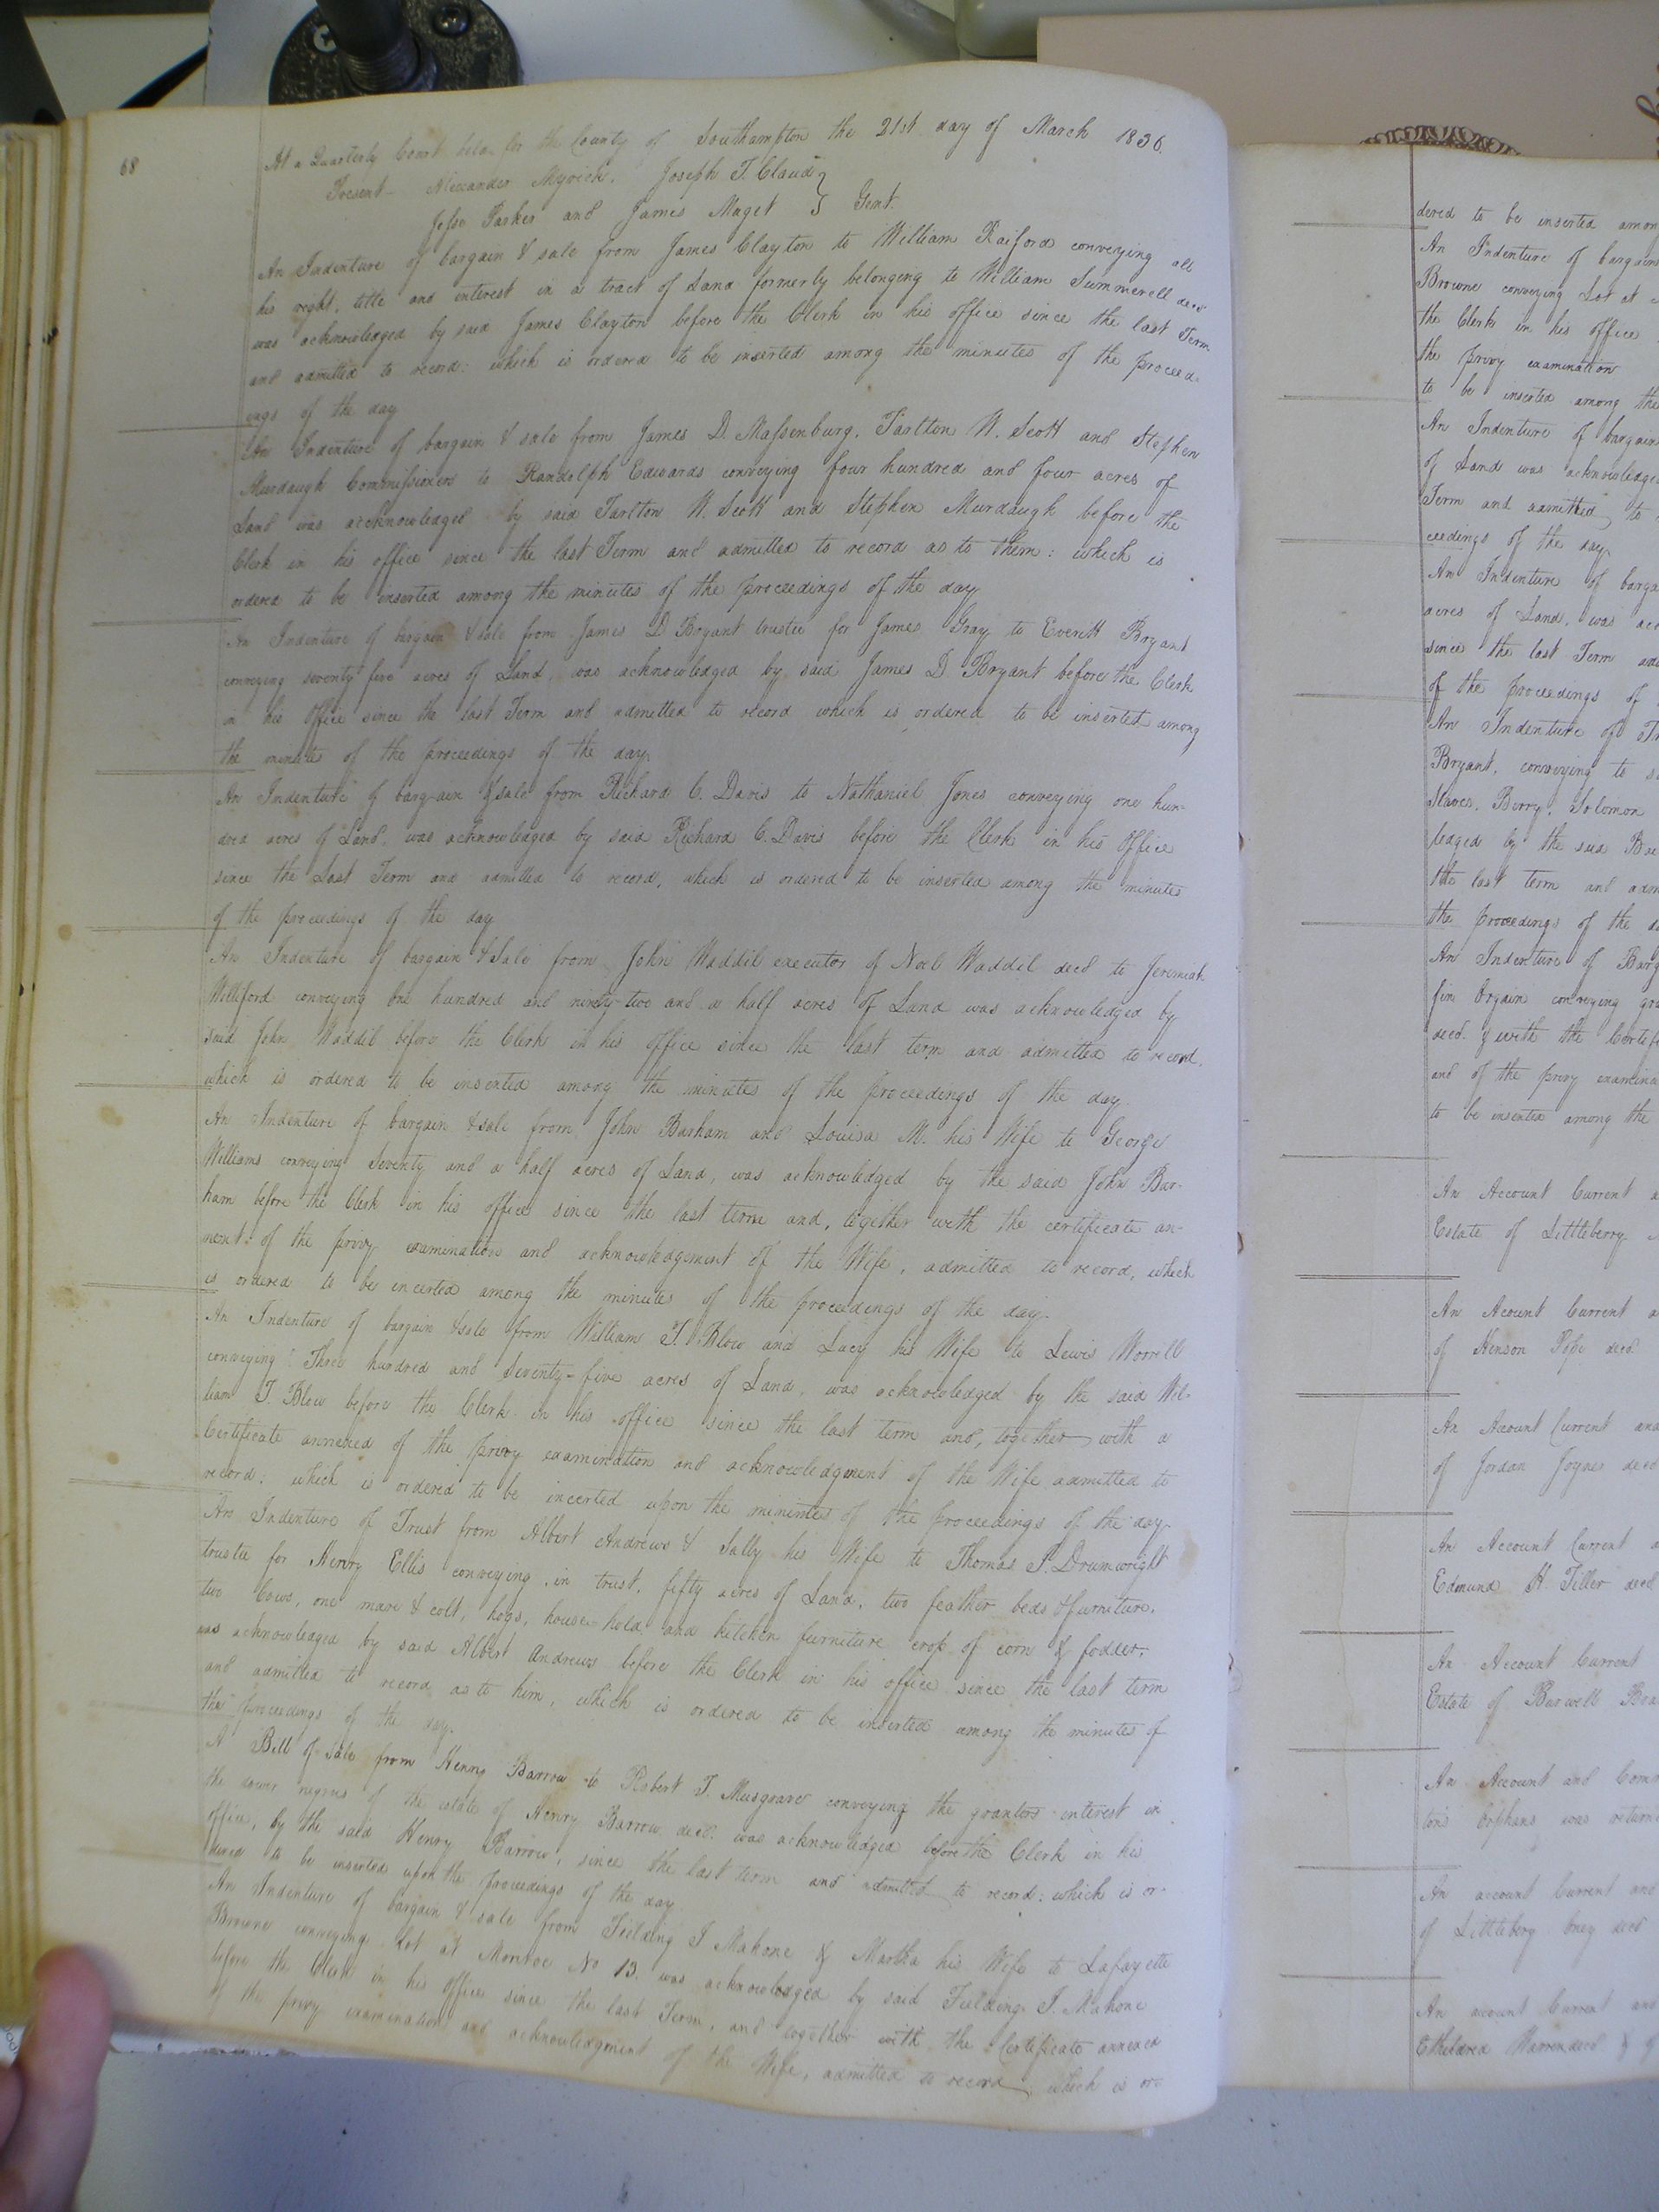 68
At a Quarterly Court held for the County of Southampton the 21st day of March 1836.
Present - Alexander Myrick, Joseph T. Claud }
Jesse Parker and James Maget } Gent.
An Indenture of bargain & sale from James Clayton to William Raiford conveying all
his right, title and interest in a tract of Land formerly belonging to William Summerell decd
was acknowledged by said James Clayton before the Clerk in his office since the last Term
and admitted to record: which is ordered to be inserted among the minutes of the proceed-
ings of the day
An Indenture of bargain & sale from James D. Massenburg, Tarlton W. Scott and Stephen
Murdaugh Commissioners to Randolph Edwards conveying four hundred and four acres of
Land was acknowledged by said Tarlton W. Scott and Stephen Murdaugh before the
Clerk in his office since the last Term and admitted to record as to them: which is
ordered to be inserted among the minutes of the proceedings of the day
An Indenture of bargain & sale from James D Bryant trustee for James Gray to Everitt Bryant
conveying seventy five acres of Land, was acknowledged by said James D Bryant before the Clerk
in his Office since the last Term and admitted to record which is ordered to be inserted among
the minutes of the proceedings of the day.
An Indenture of bargain & sale from Richard C. Davis to Nathaniel Jones conveying one hun-
dred acres of Land, was acknowledged by said Richard C. Davis before the Clerk in his Office
since the Last Term and admitted to record, which is ordered to be inserted among the minutes
of the proceedings of the day
An Indenture of bargain & sale from John Waddil executor of Noel Waddil decd to Jeremiah
Williford conveying One hundred and ninety-two and a half acres of Land was acknowledged by
said John Waddil before the Clerk in his Office since the last term and admitted to record.
which is ordered to be inserted among the minutes of the proceedings of the day.
An Indenture of bargain & sale from John Barham and Louisa M. his Wife to George
Williams conveying Seventy and a half acres of Land, was acknowledged by the said John Bar-
ham before the Clerk in his office since the last term and, together with the certificate an-
of the privy examination and acknowledgement of the Wife, admitted to record, which
is ordered to be incerted among the minutes of the proceedings of the day.
An Indenture of bargain & sale from William T. Blow and Lucy his Wife to Lewis Worrell
conveying Three hundred and Seventy-five acres of Land, was acknowledged by the said Wil-
liam T. Blow before the Clerk in his office since the last term and, together with a
Certificate annexed of the privy examination and acknowledgment of the Wife admitted to
record: which is ordered to be incerted upon the minutes of the proceedings of the day.
An Indenture of Trust from Albert Andrews & Sally his Wife to Thomas P. Drumwright
trustee for Henry Ellis conveying, in trust, fifty acres of Land, two feather beds & furniture,
two Cows, one mare & colt, hogs, house-hold and kitchen furniture crop of corn & fodder,
was acknowledged by said Albert Andrews before the Clerk in his office since the last term
and admitted to record as to him, which is ordered to be inserted among the minutes of
the proceedings of the day.
A Bill of Sale from Henry Barrow to Robert T. Musgrave conveying the grantors interest in
the dower negroes of the estate of Henry Barrow decd. was acknowledged before the Clerk in his
office, by the said Henry Barrow, since the last term and admitted to record: which is or-
dered to be inserted upon the proceedings of the day.
An Indenture of bargain & sale from Fielding J Mahone & Martha his Wife to Lafayette
Browne conveying Lot at Monroe No 13. was acknowledged by said Fielding J. Mahone
before the Clerk in his office since the last Term, and together with the Certificate annexed
of the privy examination and acknowledgment of the Wife, admitted to record, which is or-
dered to be inserted among
An Indenture of bargain
Browne conveying Lot at
the Clerk in his Office
the privy examination
to be inserted among the
An Indenture of bargain
of Land was acknowledge
Term and admitted to
ceedings of the day.
An Indenture of barga
acres of Land, was ac
since the last Term ad
of the proceedings of
An Indenture of Tr
Bryant, conveying to
slaves, Berry, Solomon
ledged by the said
the last term and adm
the proceedings of the
An Indenture of Barg
conveying
decd. & with the Certif
and of the privy examina
to be inserted among the
An Account Current
Estate of Littleberry
An Acount Current
of Henson Pope decd.
An Acount Current and
of Jordan Joyner decd
An Account Current
Edmund H. Tiller decd
An Account Current
Estate of Burwell
An Account and Comm
Orphans was return
An account Current and
of Littleberry decd
An acount Current and
Etheldred Warren decd &